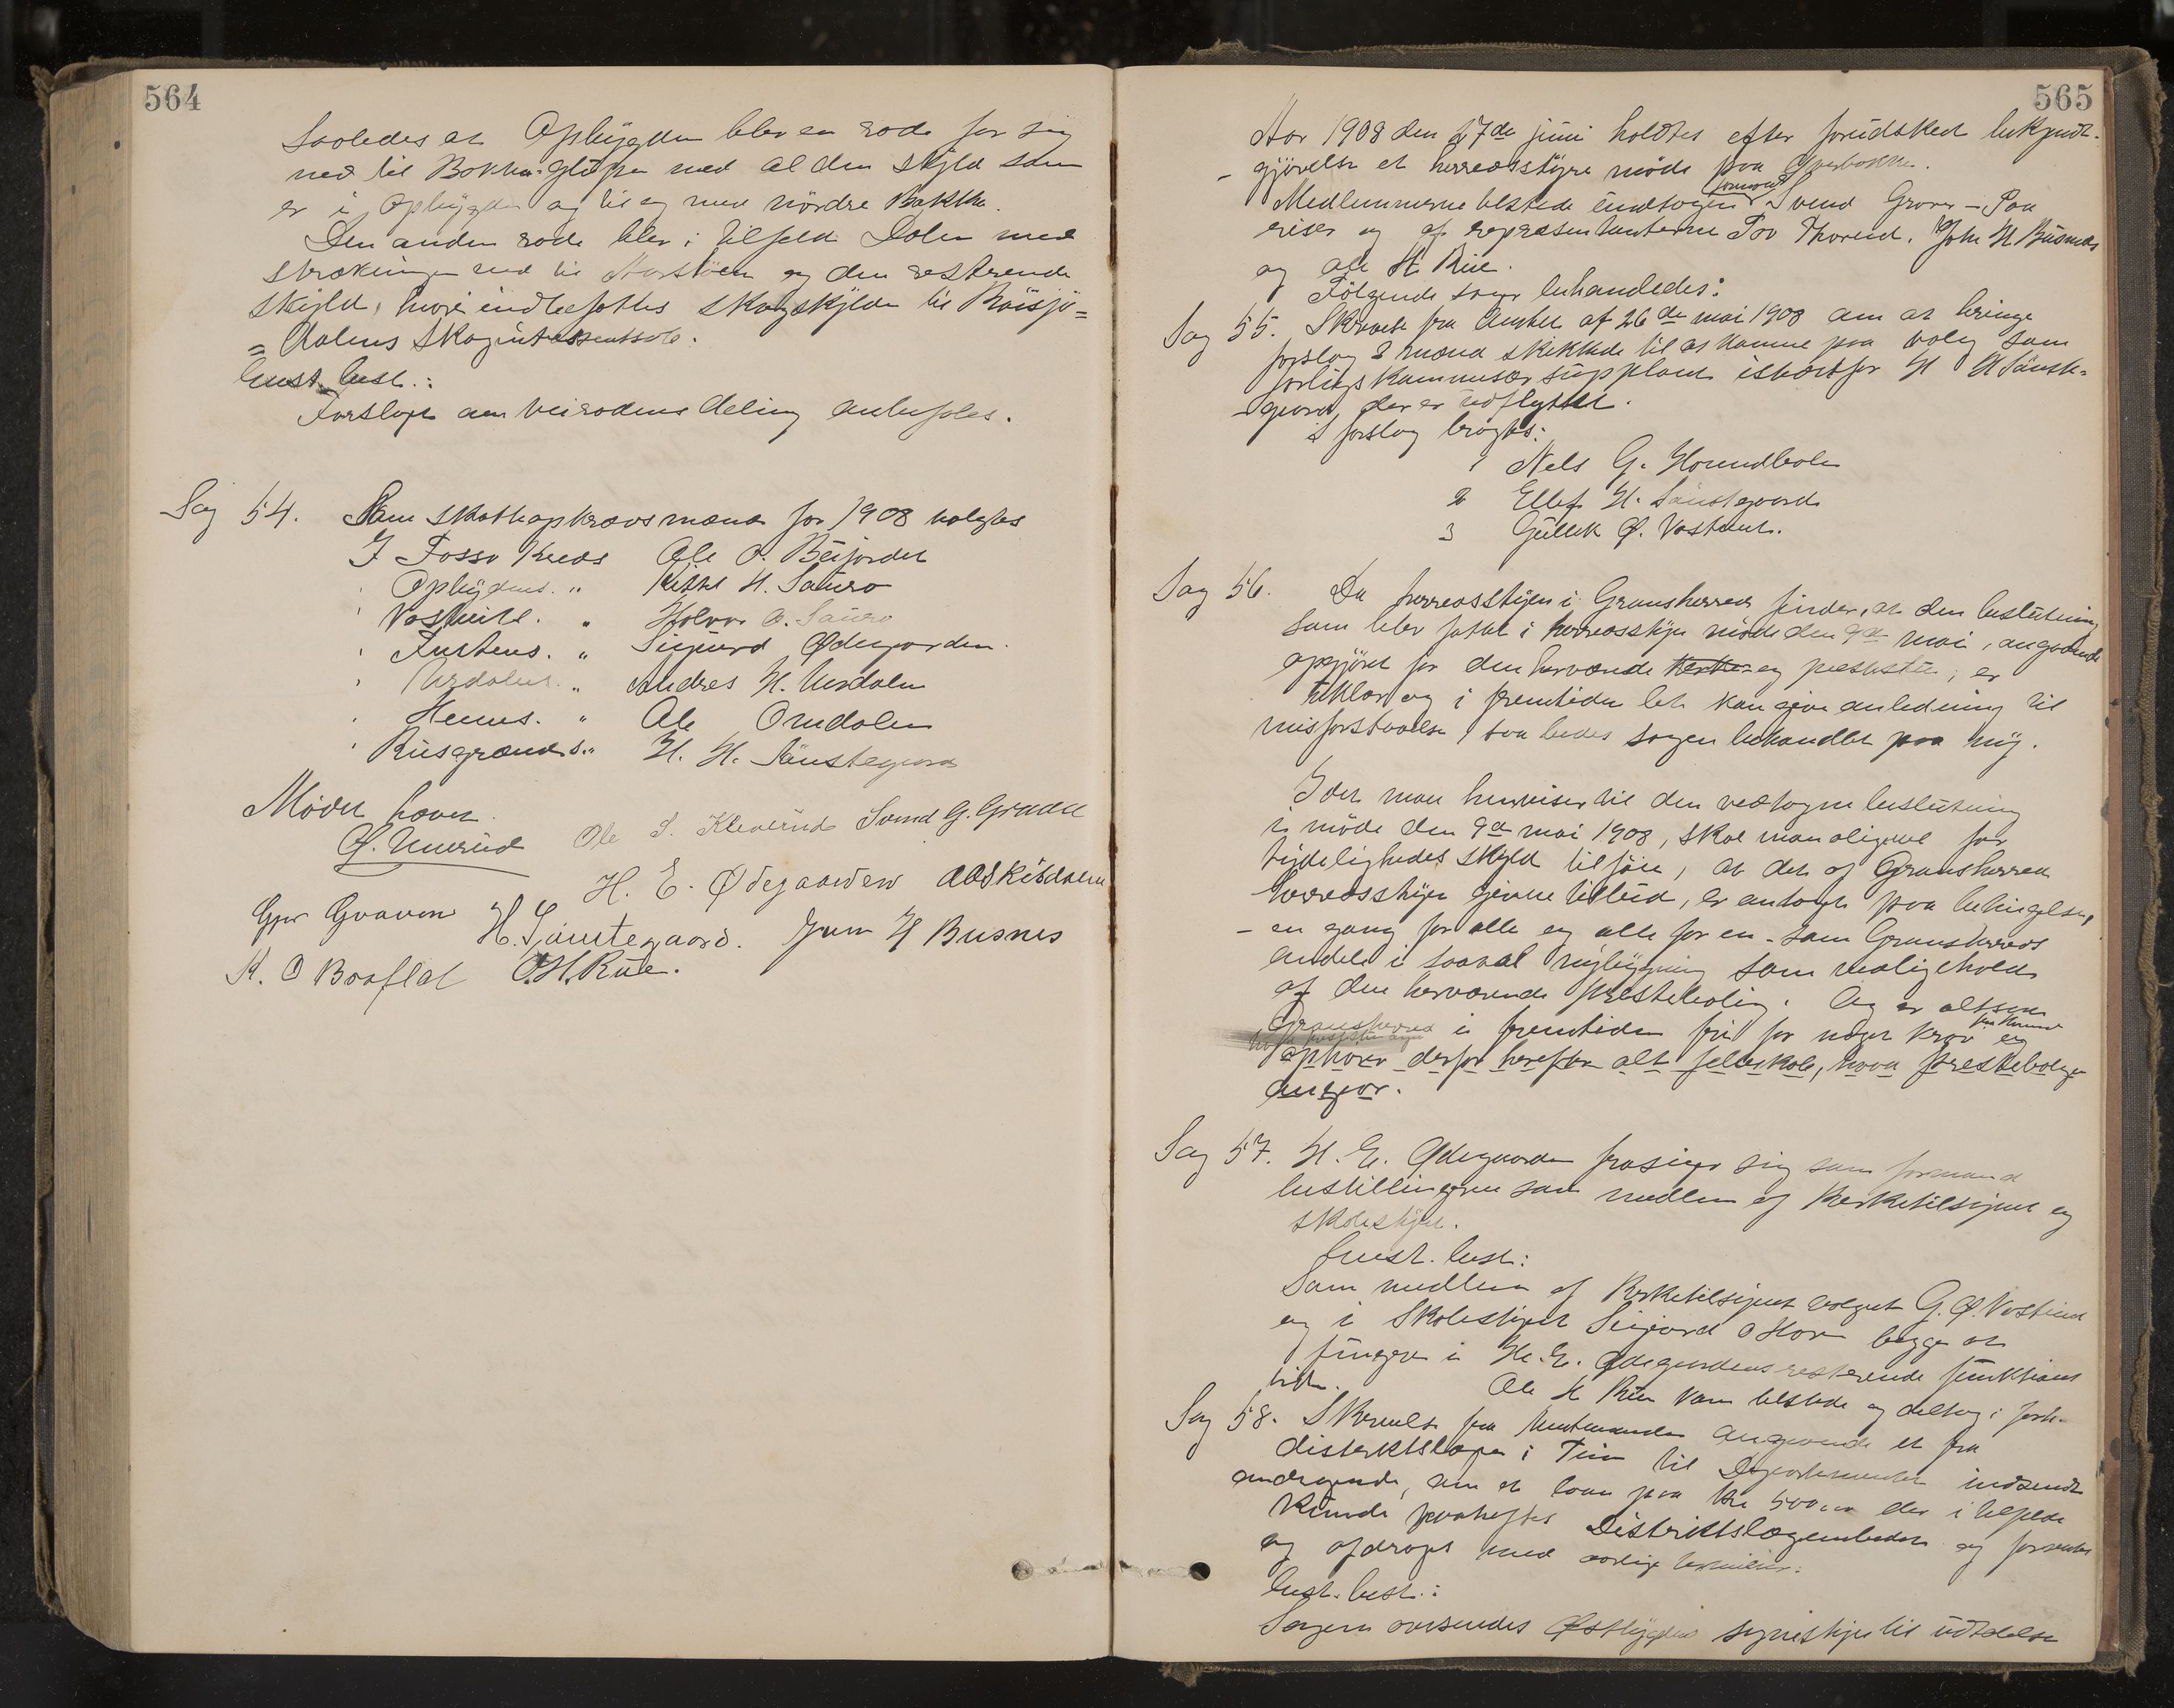 564
Saaledes at Opbygden blev en rode for sig
ned til Bakka-Glupen med al den skyld som
er i Opbygden og til og med nördre Bakka.
Den anden rode blev i tilfeld Dalen med
strækningen ned til og den resterende
skyld, hvori indbefattes skogskylden til Busjö=
=dalens Skoginteressentsk.
Enst. besl.:
Forslaget om veirodens deling anbefales.
Sag 54. Som skatteopkrævsmænd for 1908 valgtes
I Fosso Kreds Ole O. Böijordet
" Opbygdens. " Kittil H. Sauro
" " Halvor O. Sauro
" " Sigurd Ødegarden.
" Urdalens. " Andres H. Urdalen
" " Ole Omdalen
" Rusgrænds. " H. H. Sønstegaard
Mödet hævet.
Ole S. Kleverud Svend G. Graver
H. E. Ødegaarden
Graven H. Sønstegaard. H Busnes
K. O Boaflot O.H. Rue.
565
Aar 1908 den 17de juni holdtes efter forudskeet bekjendt-
-gjörelse et herredsstyre möde paa
Medlemmerne tilstede undtagen formand Svend Graver - Paa
reiser og af repræsentanterne Tov Thorud. John H Busnæs
og Ole H. Rue.
Fölgende sager behandledes:
Sag 55. Skrivelse fra Amtet af 26de mai 1908 om at bringe
forslag 3 mænd skikkede til at komme paa valg som
forligskommissær supplant istedetfor H H Sönste-
-gaard, der er udflyttet.
I forslag bragtes:
1 Nels G. Houndbole
2 Ellef H. Sönstegaard
3 Gullek Ø. Vastveit.
Sag 56. Da herredsstyre i Gransherred finder, at den beslutning
som blev fattet i herredsstyre möde den 9de mai, angaaende
opgjöret for den herværende og ; er
uklar og i fremtiden let kan give anledning til
misforstaaelse, saa bedes sagen behandlet paa ny.
Idet man henviser til den vedtagne beslutning
i möde den 9de mai 1908, skal man aligevel for
tydelighedens skyld tilföie, at det af Gransherred
herredsstyre givne tilbud, er antaget paa betingelse,
- en gang for alle og alle for en - som Gransherreds
andele i saavel nybygning som vedligehold
af den herværende prestebolig. Og er altsaa
Gransherred i fremtiden fri for noget krav og
ophörer derfor herefter alt felleskab, hvad prestebolig
angaar.
Sag 57. H. E. Ødegaarden frasiger sig som formand
bestillingerne som medlem af Kirketilsynet og
skolestyret.
Enst. besl.:
Som medlem af Kirketilsynet valgtes G. Ø. Vastveit
og i Skolestyret Sigurd O Hovn begge at
fungere i H. E. Ødegaardens resterende funktions
tid. Ole H Rue kom tilstede og deltog i forh.
Sag 58. Skrivelse fra Amtmanden angaaende et fra
distriktslægen i Tinn til Departementet indsendt
andragende, om et laan paa Kr 500 der i tilfelde
kunde paaheftes Distriktslægeembedet og forrentes
og afdrages med aarlige terminer.
Enst. besl.:
Sagen oversendes Östbygdens sognestyre til udtalelse